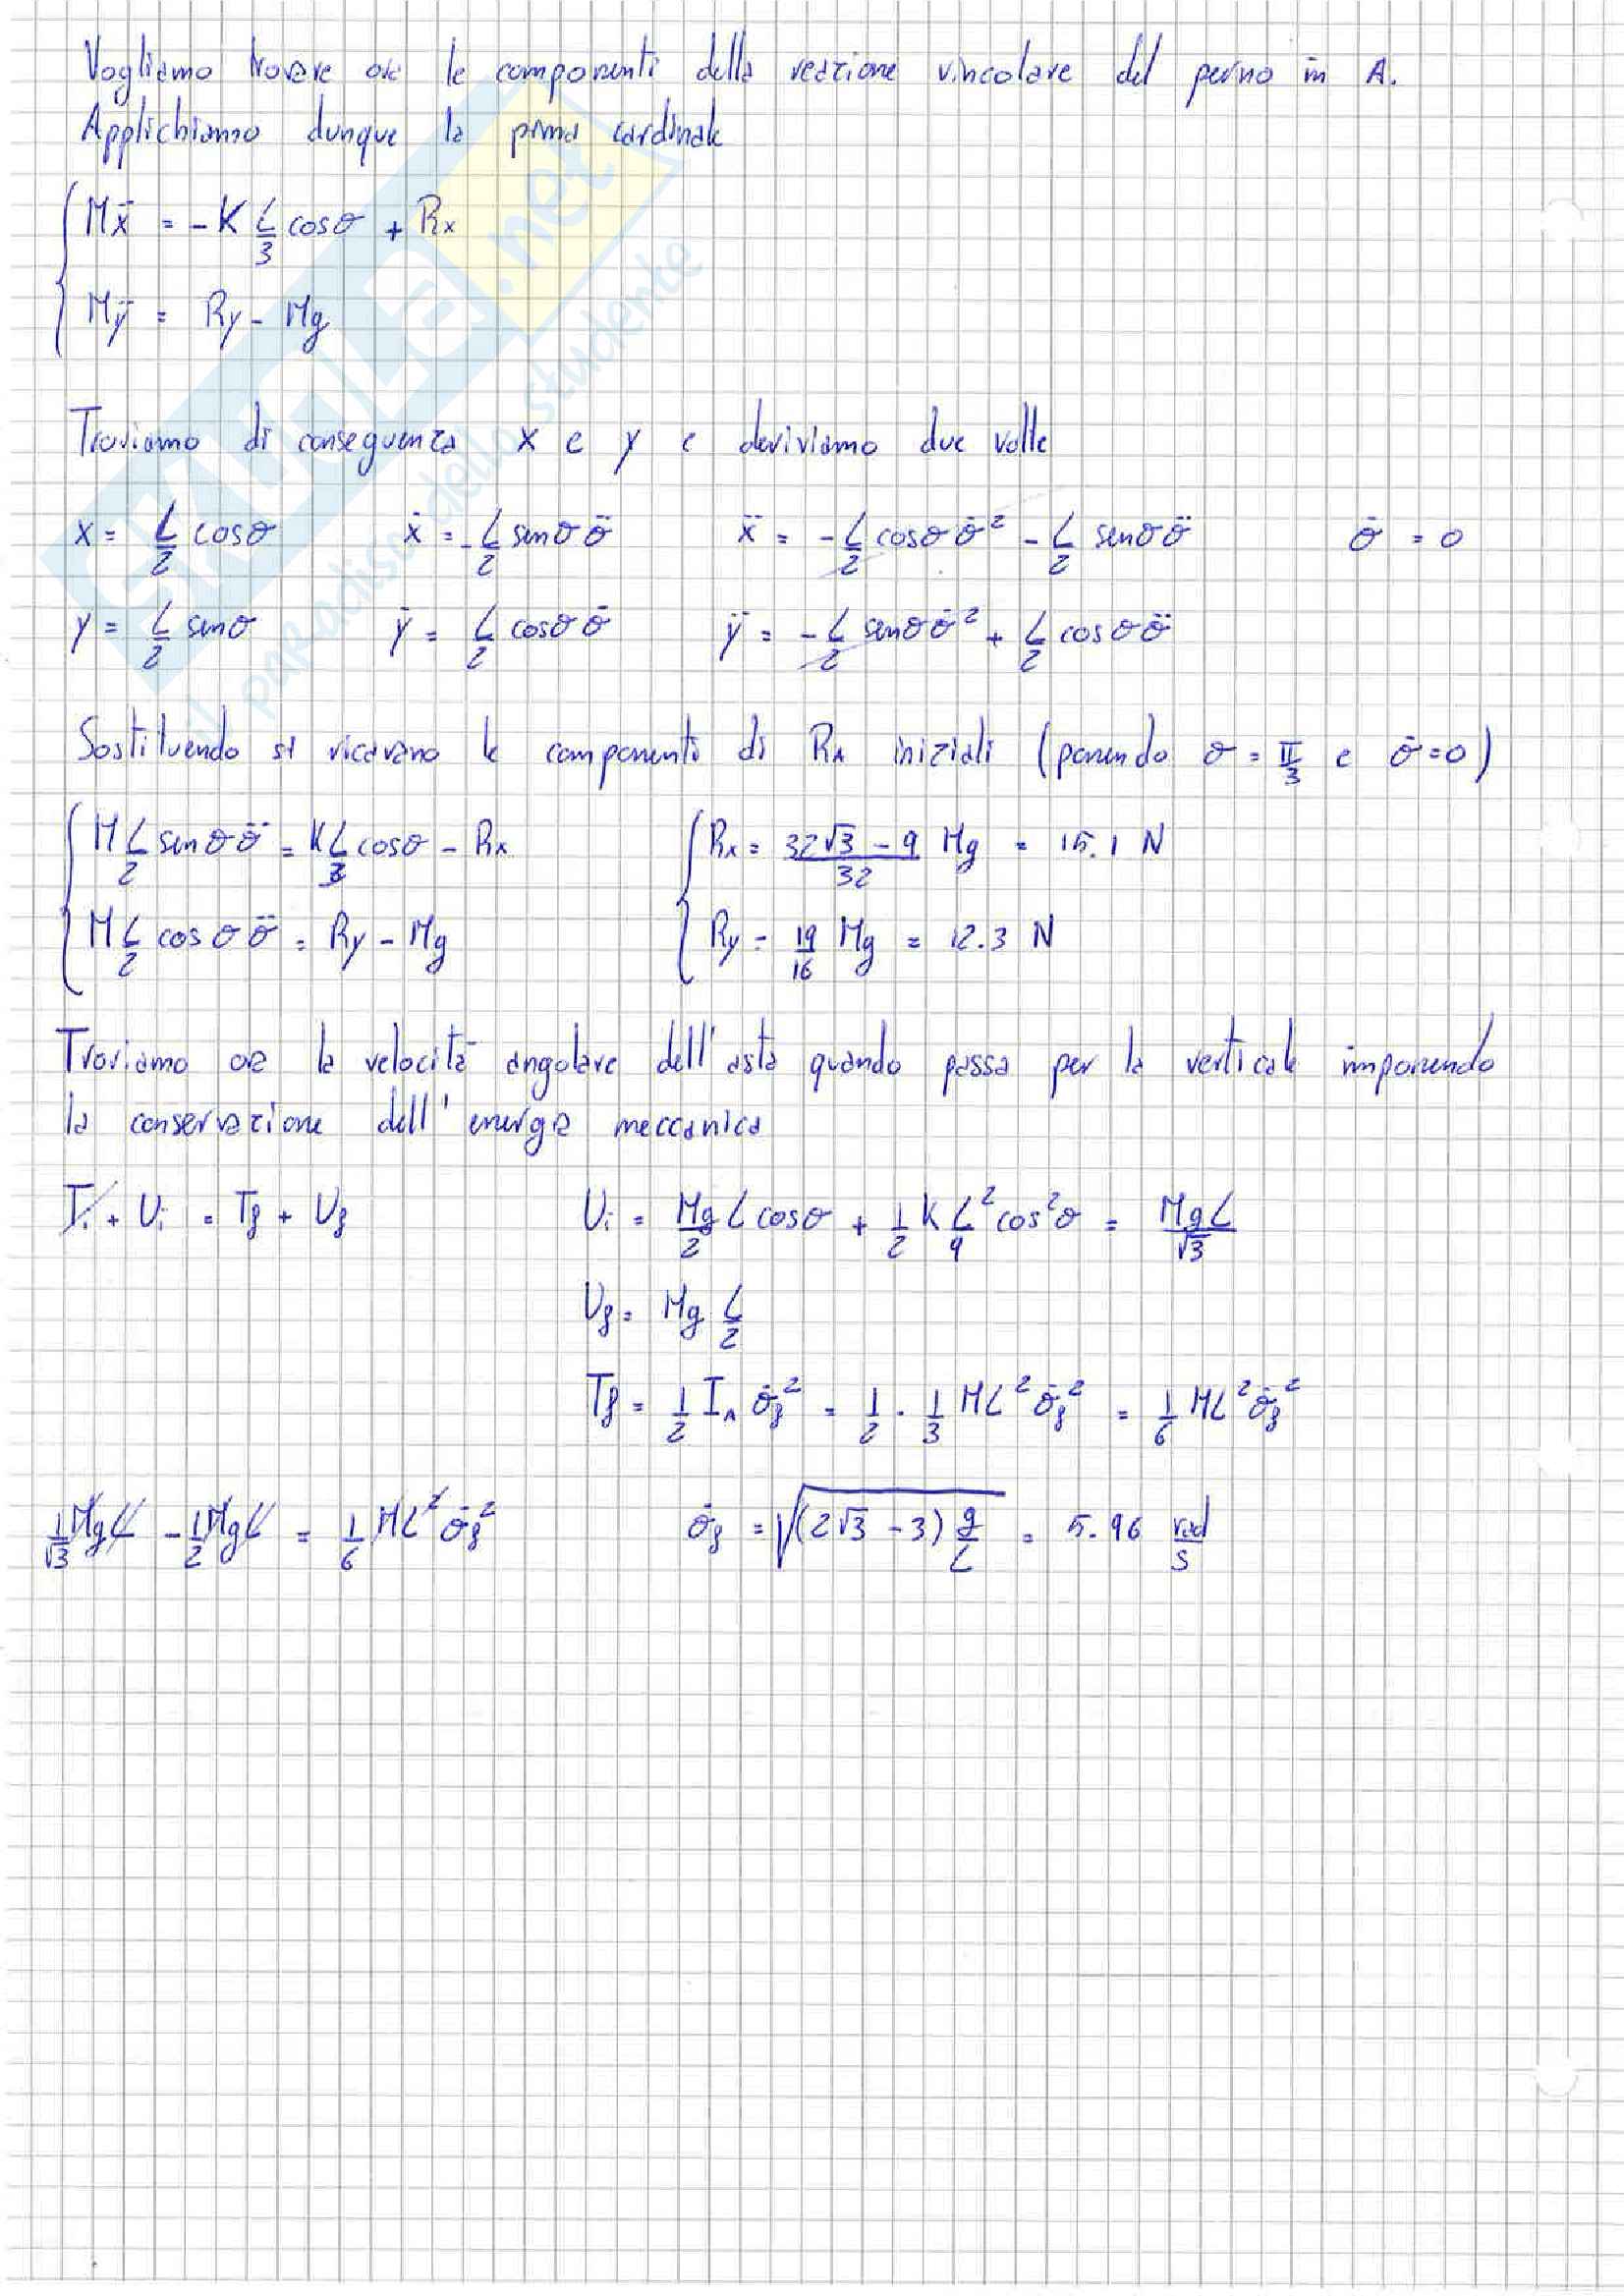 Vogliamo trovare ora le componenti della reazione vincolare del perno in A.
Applichiamo dunque la prima cardinale
Mẍ = -K L/3 cosθ + Rx
Mÿ = Ry - Mg
Troviamo di conseguenza x e y e deriviamo due volte
x = L/2 cosθ ẋ = -L/2 senθ θ̈ ẍ = -L/2 cosθ θ̇² - L/2 senθ θ̈ θ̇ = 0
y = L/2 senθ ẏ = L/2 cosθ θ̇ ÿ = -L/2 senθ θ̇² + L/2 cosθ θ̈
Sostituendo si ricavano le componenti di RA iniziali (ponendo θ = π/3 e θ̇ = 0)
M L/2 senθ θ̈ = K L/3 cosθ - Rx Rx = (32√3 - 9)/32 Mg = 15.1 N
M L/2 cosθ θ̈ = Ry - Mg Ry = 19/16 Mg = 12.3 N
Troviamo ora la velocità angolare dell'asta quando passa per la verticale imponendo
la conservazione dell'energia meccanica
Ti + Ui = Tf + Uf Ui = Mg/2 L cosθ + 1/2 K L²/9 cos²θ = MgL/√3
Uf = Mg L/2
Tf = 1/2 IA θ̇f² = 1/2 · 1/3 ML² θ̇f² = 1/6 ML² θ̇f²
1/√3 MgL - 1/2 MgL = 1/6 ML² θ̇f² θ̇f = √((2√3 - 3) g/L) = 5.96 rad/s
il paradiso dello studente